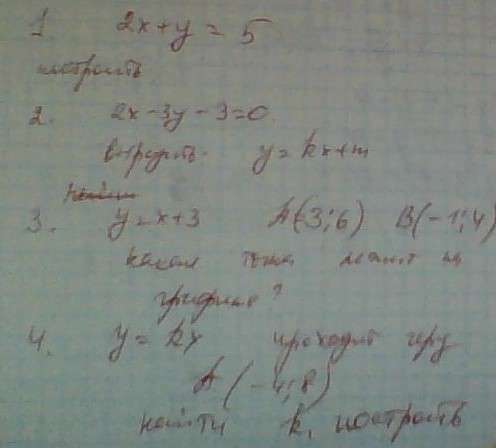 1 2x+y = 5
построить
2. 2x-3y-3=0.
выразить y=kx+m
3. y=x+3 A(3;6) B(-1;4)
какая точка лежит на
графике?
4. y=kx проходит через
A(-4;8)
найти k, построить